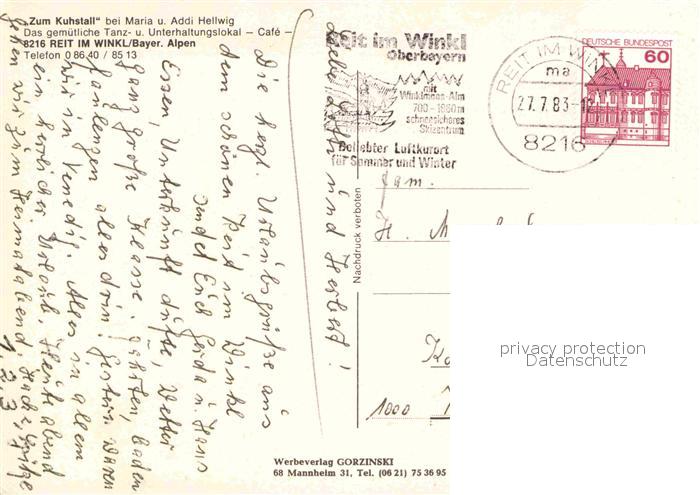 „Zum Kuhstall" bei Maria u. Addi Hellwig
Das gemütliche Tanz- u. Unterhaltungslokal – Café –
8216 REIT IM WINKL/Bayer. Alpen
Telefon 0 86 40 / 85 13
Reit im Winkl
Oberbayern
mit
Winklmoos-Alm
700 - 1860 m
schneesicheres
Skizentrum
Beliebter Luftkurort
für Sommer und Winter
REIT IM WINKL
ma
27.7.83-12
8216
DEUTSCHE BUNDESPOST
60
Liebe und Herbert!
Die herzl. Urlaubsgrüße aus
dem schönen Reit im Winkl
sendet Euch Gerda u. Hans
Essen Unterkunft dufte, Wetter
ganz große Klasse. baden
faulenzen alles drin. Gestern waren
wir in Venedig. Alles in allem
ein herrlicher Urlaub. Heute abend
gehen wir zum Heimatabend.
1 2 3
Nachdruck verboten
Fam.
H.
1000
Werbeverlag GORZINSKI
68 Mannheim 31, Tel. (06 21) 75 36 95
privacy protection
Datenschutz